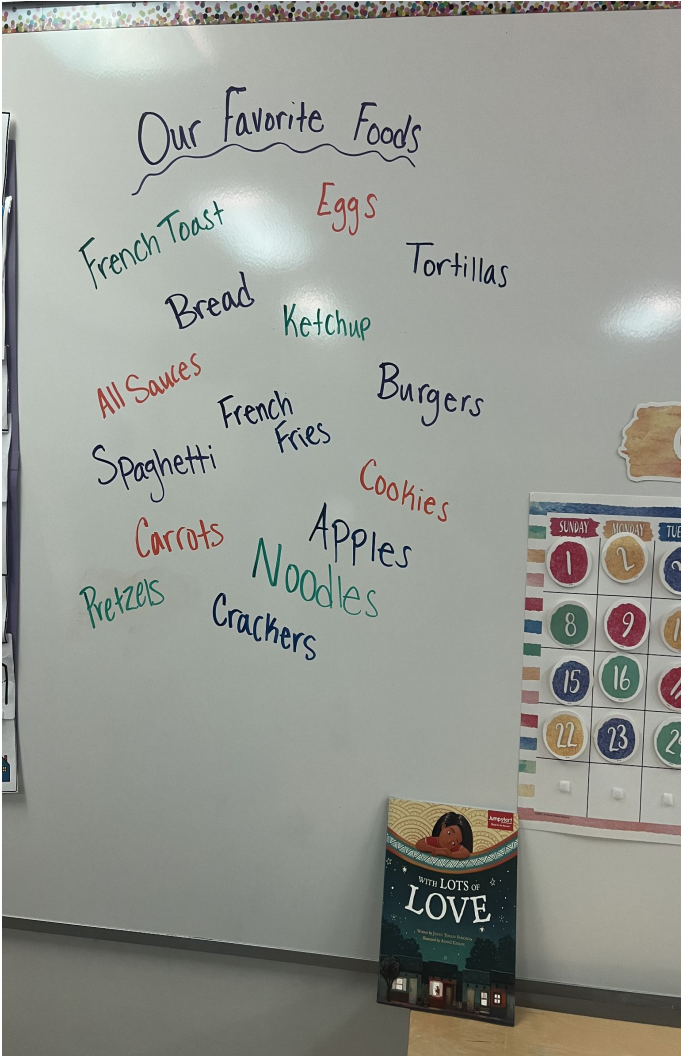 Our Favorite Foods
Eggs
French Toast
Tortillas
Bread
Ketchup
All Sauces
Burgers
French
Fries
Spaghetti
Cookies
Carrots
Apples
Noodles
Pretzels
Crackers
SUNDAY MONDAY TUE
1 2
8 9 1
15 16
22 23 2
Jumpstart
WITH LOTS OF
LOVE